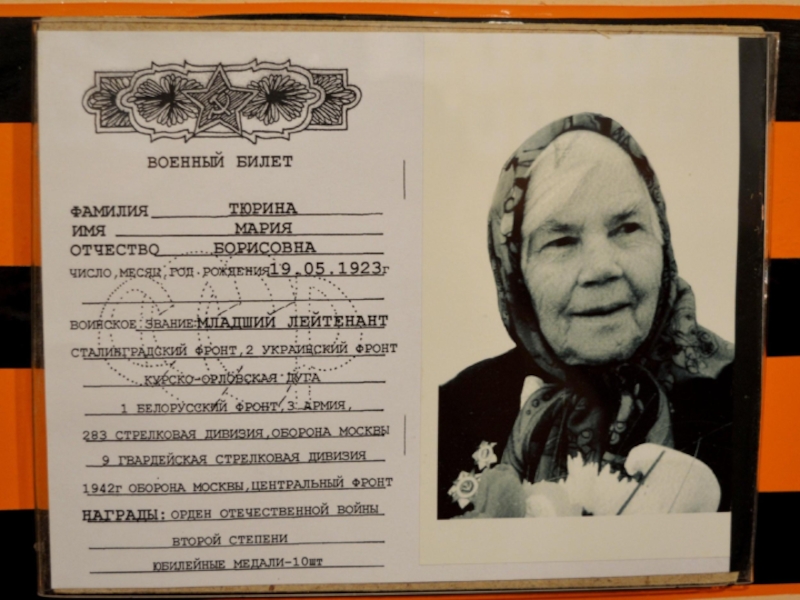 ВОЕННЫЙ БИЛЕТ
ФАМИЛИЯ ТЮРИНА
ИМЯ МАРИЯ
ОТЧЕСТВО БОРИСОВНА
ЧИСЛО, МЕСЯЦ, ГОД РОЖДЕНИЯ 19.05.1923г
ВОИНСКОЕ ЗВАНИЕ МЛАДШИЙ ЛЕЙТЕНАНТ
СТАЛИНГРАДСКИЙ ФРОНТ, 2 УКРАИНСКИЙ ФРОНТ
КУРСКО-ОРЛОВСКАЯ ДУГА
1 БЕЛОРУССКИЙ ФРОНТ, 3 АРМИЯ,
283 СТРЕЛКОВАЯ ДИВИЗИЯ, ОБОРОНА МОСКВЫ
9 ГВАРДЕЙСКАЯ СТРЕЛКОВАЯ ДИВИЗИЯ
1942г ОБОРОНА МОСКВЫ, ЦЕНТРАЛЬНЫЙ ФРОНТ
НАГРАДЫ: ОРДЕН ОТЕЧЕСТВЕННОЙ ВОЙНЫ
ВТОРОЙ СТЕПЕНИ
ЮБИЛЕЙНЫЕ МЕДАЛИ-10шт